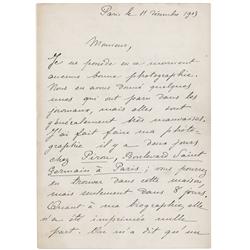 Paris le 11 Décembre 1903
Monsieur,
Je ne possède en ce moment
aucune bonne photographie.
Nous en avons donné quelques
unes qui ont paru dans les
journaux, mais elles sont
généralement très mauvaises.
J'ai fait faire ma photo-
graphie il y a deux jours
chez Pirou, Boulevard Saint
Germain à Paris ; vous pourrez
en trouver dans cette maison,
mais seulement dans 8 jours.
Quant à ma biographie, elle
n'a été imprimée nulle
part. On m'a dit qu'un